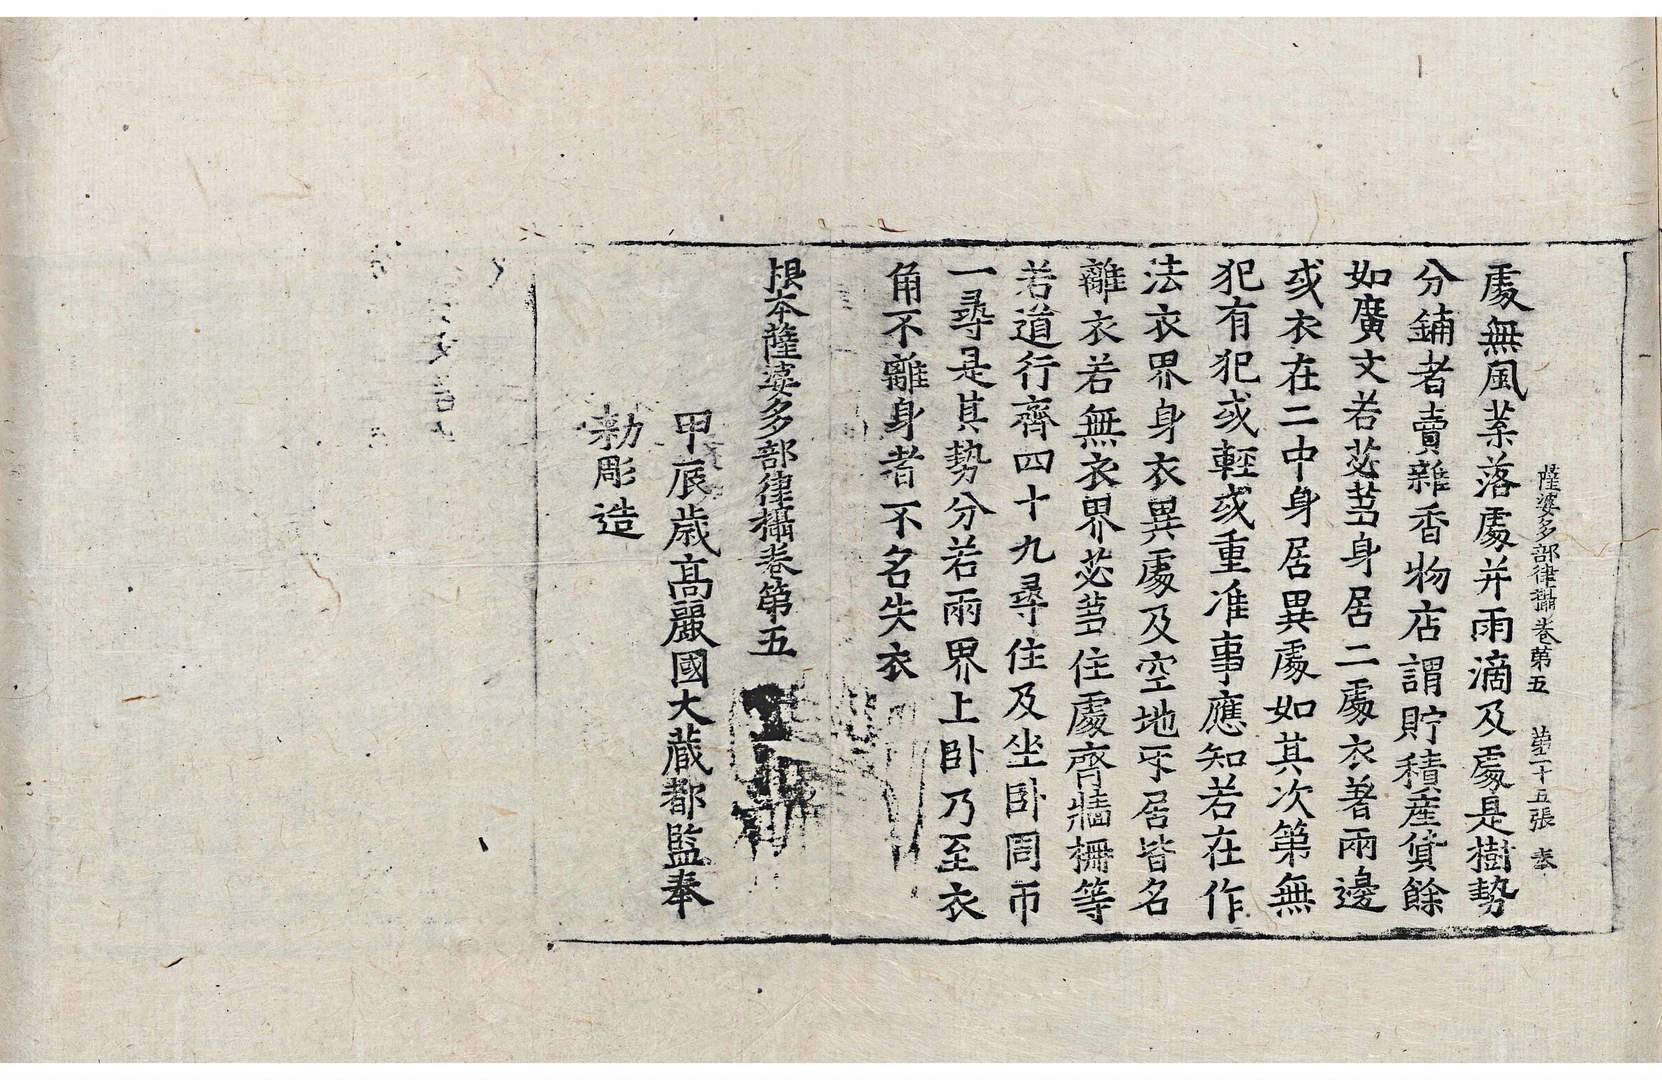 薩婆多部律攝卷第五 第二十五張 表
處無風葉落處并雨滴及處是樹勢
分鋪者賣雜香物店謂貯積産貨餘
如廣文若苾芻身居二處衣著兩邊
或衣在二中身居異處如其次第無
犯有犯或輕或重准事應知若在作
法衣界身衣異處及空地不居皆名
離衣若無衣界苾芻住處齊牆柵等
若道行齊四十九尋住及坐卧周帀
一尋是其勢分若兩界上卧乃至衣
角不離身者不名失衣
根本薩婆多部律攝卷第五
甲辰歲高麗國大藏都監奉
勑彫造